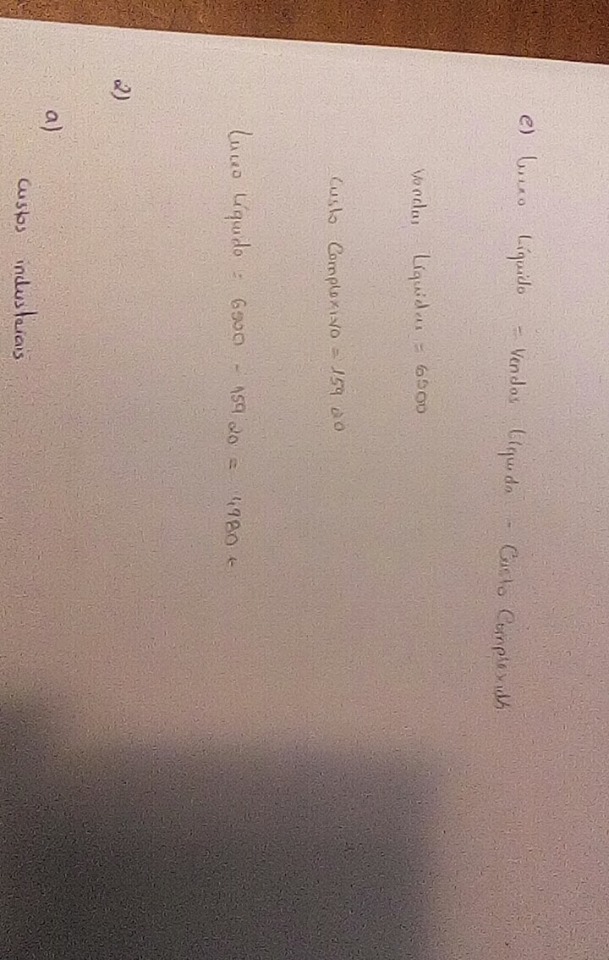 e) Lucro Líquido = Vendas Líquida - Custo Complexivo
Vendas Líquidas = 6900
Custo Complexivo = 159 20
Lucro Líquido = 6900 - 159 20 = 4980 €
2)
a)
Custos industriais